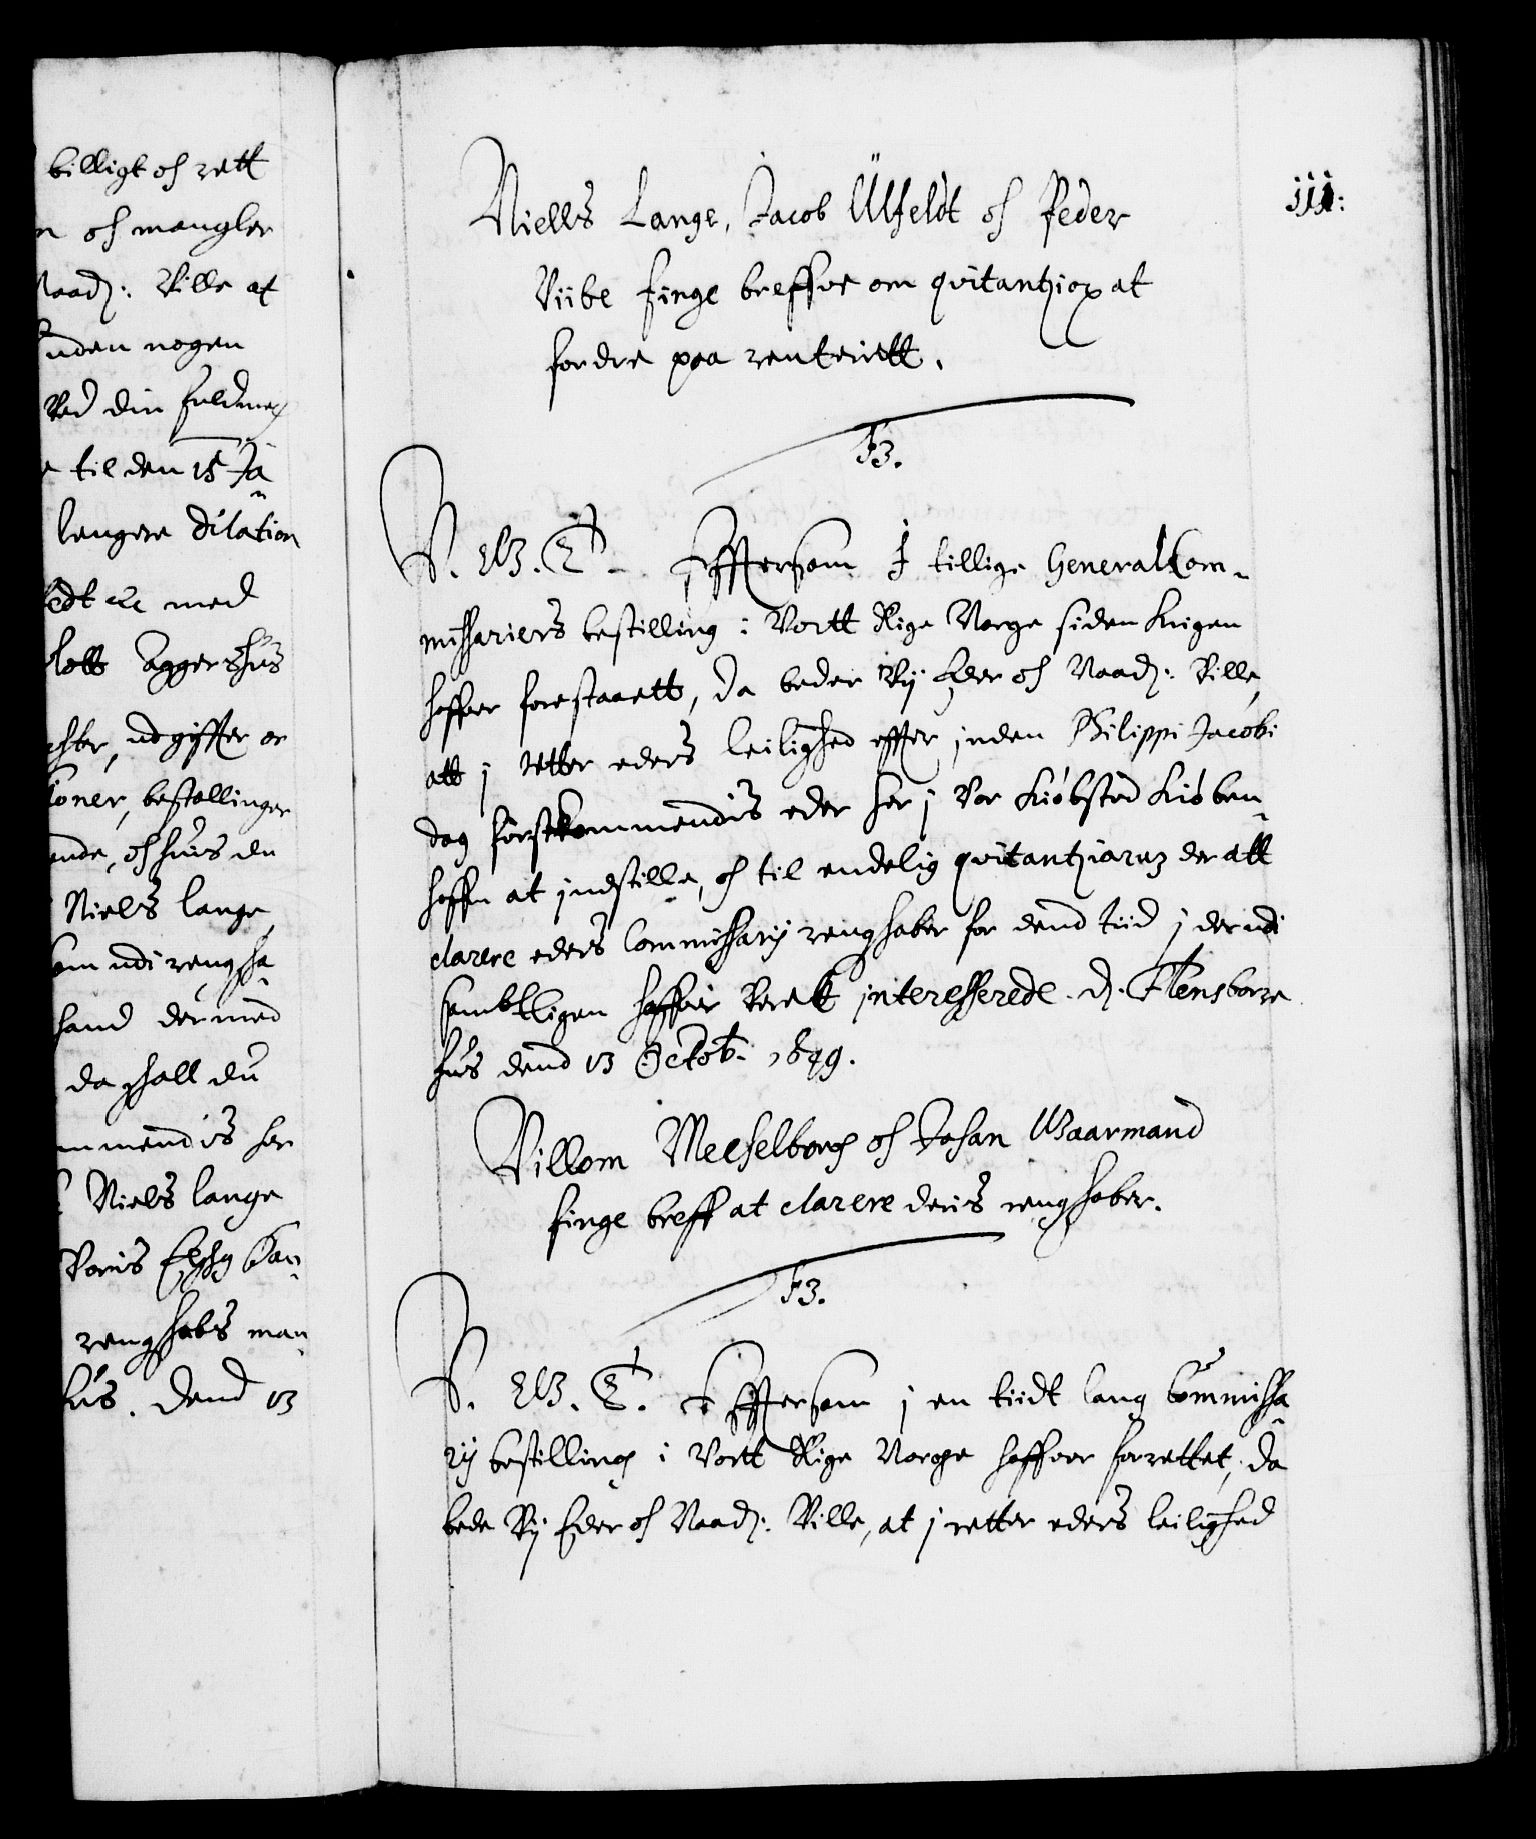 billigt och rett
n och mangler
Naadz: Ville at
uden nogen
Ved din fuldmeg
e til den 15 Ja
lengere dilation
edt etc med
slott Aggershus
chter, udgiffter or
ioner, bestallinger
ende, och huis du
Niels lange
som udi rengsha
hand der med
da schall du
mmendis her
Niels lange
Voris Elschg Can
rengschabs man
hus. dend 13
iii:
Niells Lange, Jacob Ülfeldt och Peder
Viibe finge breffue om qvitantzior at
fordre paa renteriett.
F3.
V. G. T. Effttersom I tillige General Com-
missariers bestilling i Vortt Rige Norge siden krigen
haffver forestaaett, da beder Vij Eder och Naadz: Ville,
att i retter eders leilighed effter, inden Philippi Jacobi
dag förstkommendis eder her i Vor kiöbsted kiöben-
haffn at indstille, och til endelig qvitantziarum der att
clarere eders Commissarij rengschaber for dend tiid i der udi
sembtligen haffver Verett interesserede. d. Flensborre
hus dend 13 Octob. 1649.
Villom Mecheelborg och Johan Waarmand
finge breff at clarere deris rengschaber.
F3.
V. G. T. Effttersom i en tiidt lang Commissa
rij bestilling i Vortt Rige Norge haffver forrettet, da
bede Vij Eder och Naadz: Ville, at i retter eders leilighed